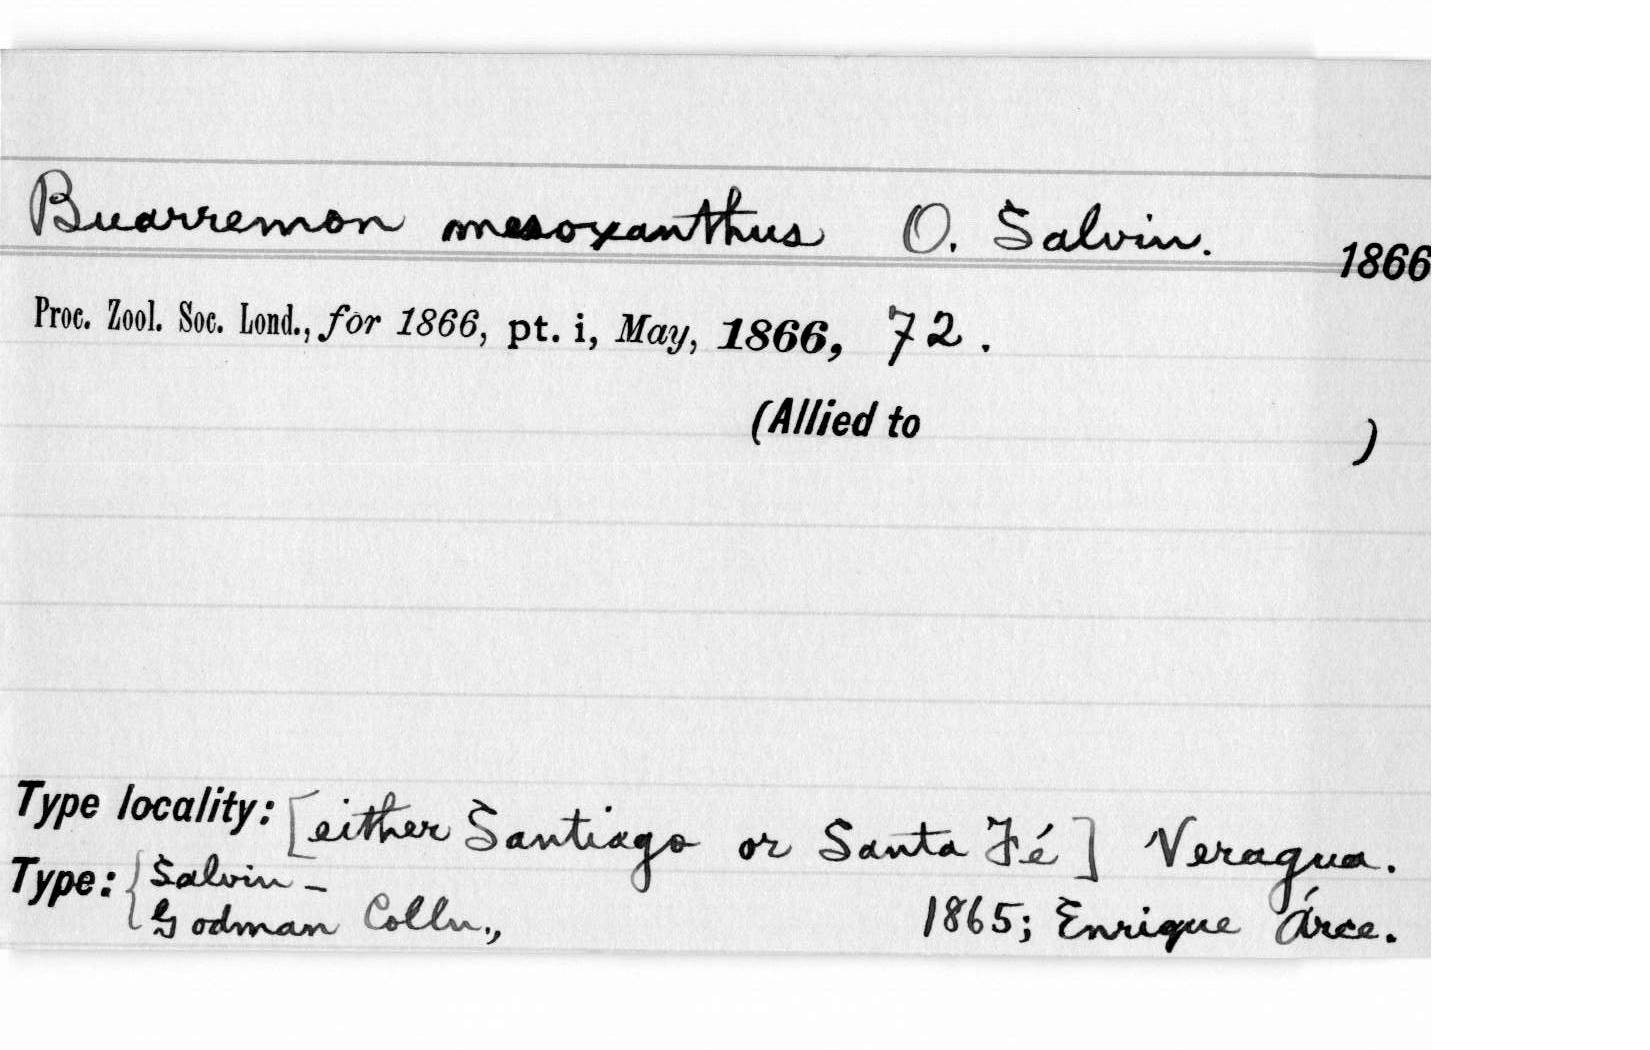 Buarremon mesoxanthus O. Salvin. 1866
Proc. Zool. Soc. Lond., for 1866, pt. i, May, 1866, 72.
(Allied to )
Type locality: [either Santiago or Santa Fé] Veragua.
Type: { Salvin-
Godman Colln., 1865; Enrique Árce.